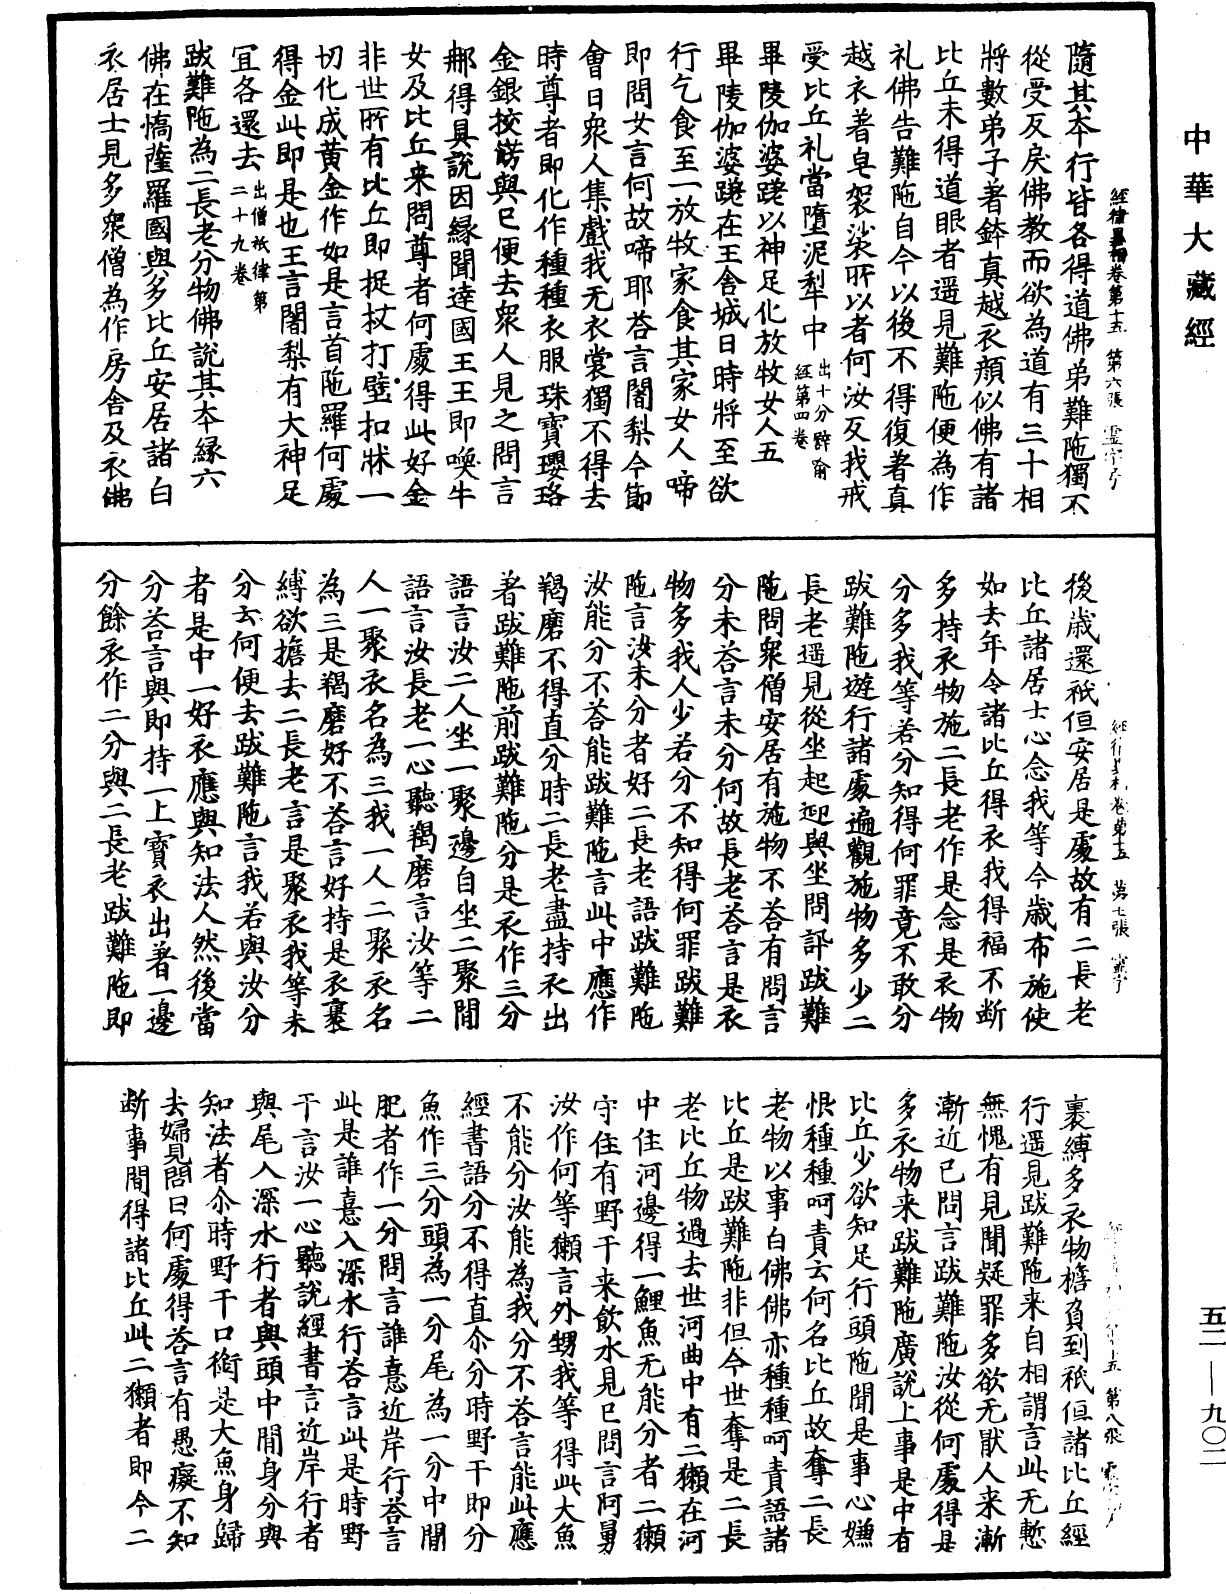 中華大藏經
經律異相卷第十五 第六張 靈字号
隨其本行皆各得道佛弟難陁獨不
從受反戾佛教而欲為道有三十相
將數弟子著鉢真越衣顏似佛有諸
比丘未得道眼者遥見難陁便為作
礼佛告難陁自今以後不得復著真
越衣著皂袈裟所以者何汝反我戒
受比丘礼當墮泥犁中出十分辟喻經第四卷
畢陵伽婆蹉以神足化放牧女人五
畢陵伽婆蹉在王舍城日時將至欲
行乞食至一放牧家食其家女人啼
即問女言何故啼耶荅言闍梨今節
會日衆人集戲我无衣裳獨不得去
時尊者即化作種種衣服珠寶瓔珞
金銀挍餝與已便去衆人見之問言
郍得具說因縁聞達國王王即喚牛
女及比丘来問尊者何處得此好金
非世所有比丘即捉杖打壁扣牀一
切化成黃金作如是言首陁羅何處
得金此即是也王言闍梨有大神足
宜各還去出僧祇律第二十九卷
跋難陁為二長老分物佛說其本縁六
佛在憍薩羅國與多比丘安居諸白
衣居士見多衆僧為作房舎及衣佛
第七張
後歲還祇洹安居是處故有二長老
比丘諸居士心念我等今歲布施使
如去年令諸比丘得衣我得福不断
多持衣物施二長老作是念是衣物
分多我等若分知得何罪竟不敢分
跋難陁遊行諸處遍觀施物多少二
長老遥見從坐起迎與坐問訊跋難
陁問衆僧安居有施物不荅有問言
分未荅言未分何故長老荅言是衣
物多我人少若分不知得何罪跋難
陁言汝未分者好二長老語跋難陁
汝能分不荅能跋難陁言此中應作
羯磨不得直分時二長老盡持衣出
著跋難陁前跋難陁分是衣作三分
語言汝二人坐一聚邊自坐二聚間
語言汝長老一心聽羯磨言汝等二
人一聚衣名為三我一人二聚衣名
為三是羯磨好不荅言好持是衣褁
縛欲擔去二長老言是聚衣我等未
分云何便去跋難陁言我若與汝分
者是中一好衣應與知法人然後當
分荅言與即持一上寶衣出著一邊
分餘衣作二分與二長老跋難陁即
第八張
褁縛多衣物擔負到祇洹諸比丘經
行遥見跋難陁来自相謂言此无慙
無愧有見聞疑罪多欲无猒人来漸
漸近已問言跋難陁汝從何處得是
多衣物来跋難陁廣說上事是中有
比丘少欲知足行頭陁聞是事心嫌
恨種種呵責云何名比丘故奪二長
老物以事白佛佛亦種種呵責語諸
比丘是跋難陁非但今世奪是二長
老比丘物過去世河曲中有二獺在河
中住河邊得一鯉魚无能分者二獺
守住有野干来飲水見已問言阿舅
汝作何等獺言外甥我等得此大魚
不能分汝能為我分不荅言能此應
經書語分不得直尒分時野干即分
魚作三分頭為一分尾為一分中間
肥者作一分問言誰憙近岸行荅言
此是誰憙入深水行荅言此是時野
干言汝一心聽說經書言近岸行者
與尾入深水行者與頭中間身分與
知法者尒時野干口銜是大魚身歸
去婦見問曰何處得荅言有愚癡不知
断事間得諸比丘此二獺者即今二
五二—九〇二